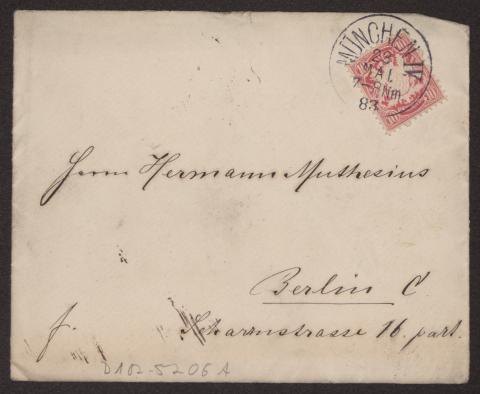 MÜNCHEN IV
23
MAI.
7-8 Nm
83
Herrn Hermann Muthesius
Berlin C
fr. Scharrnstrasse 16. part.
D102-5206 A